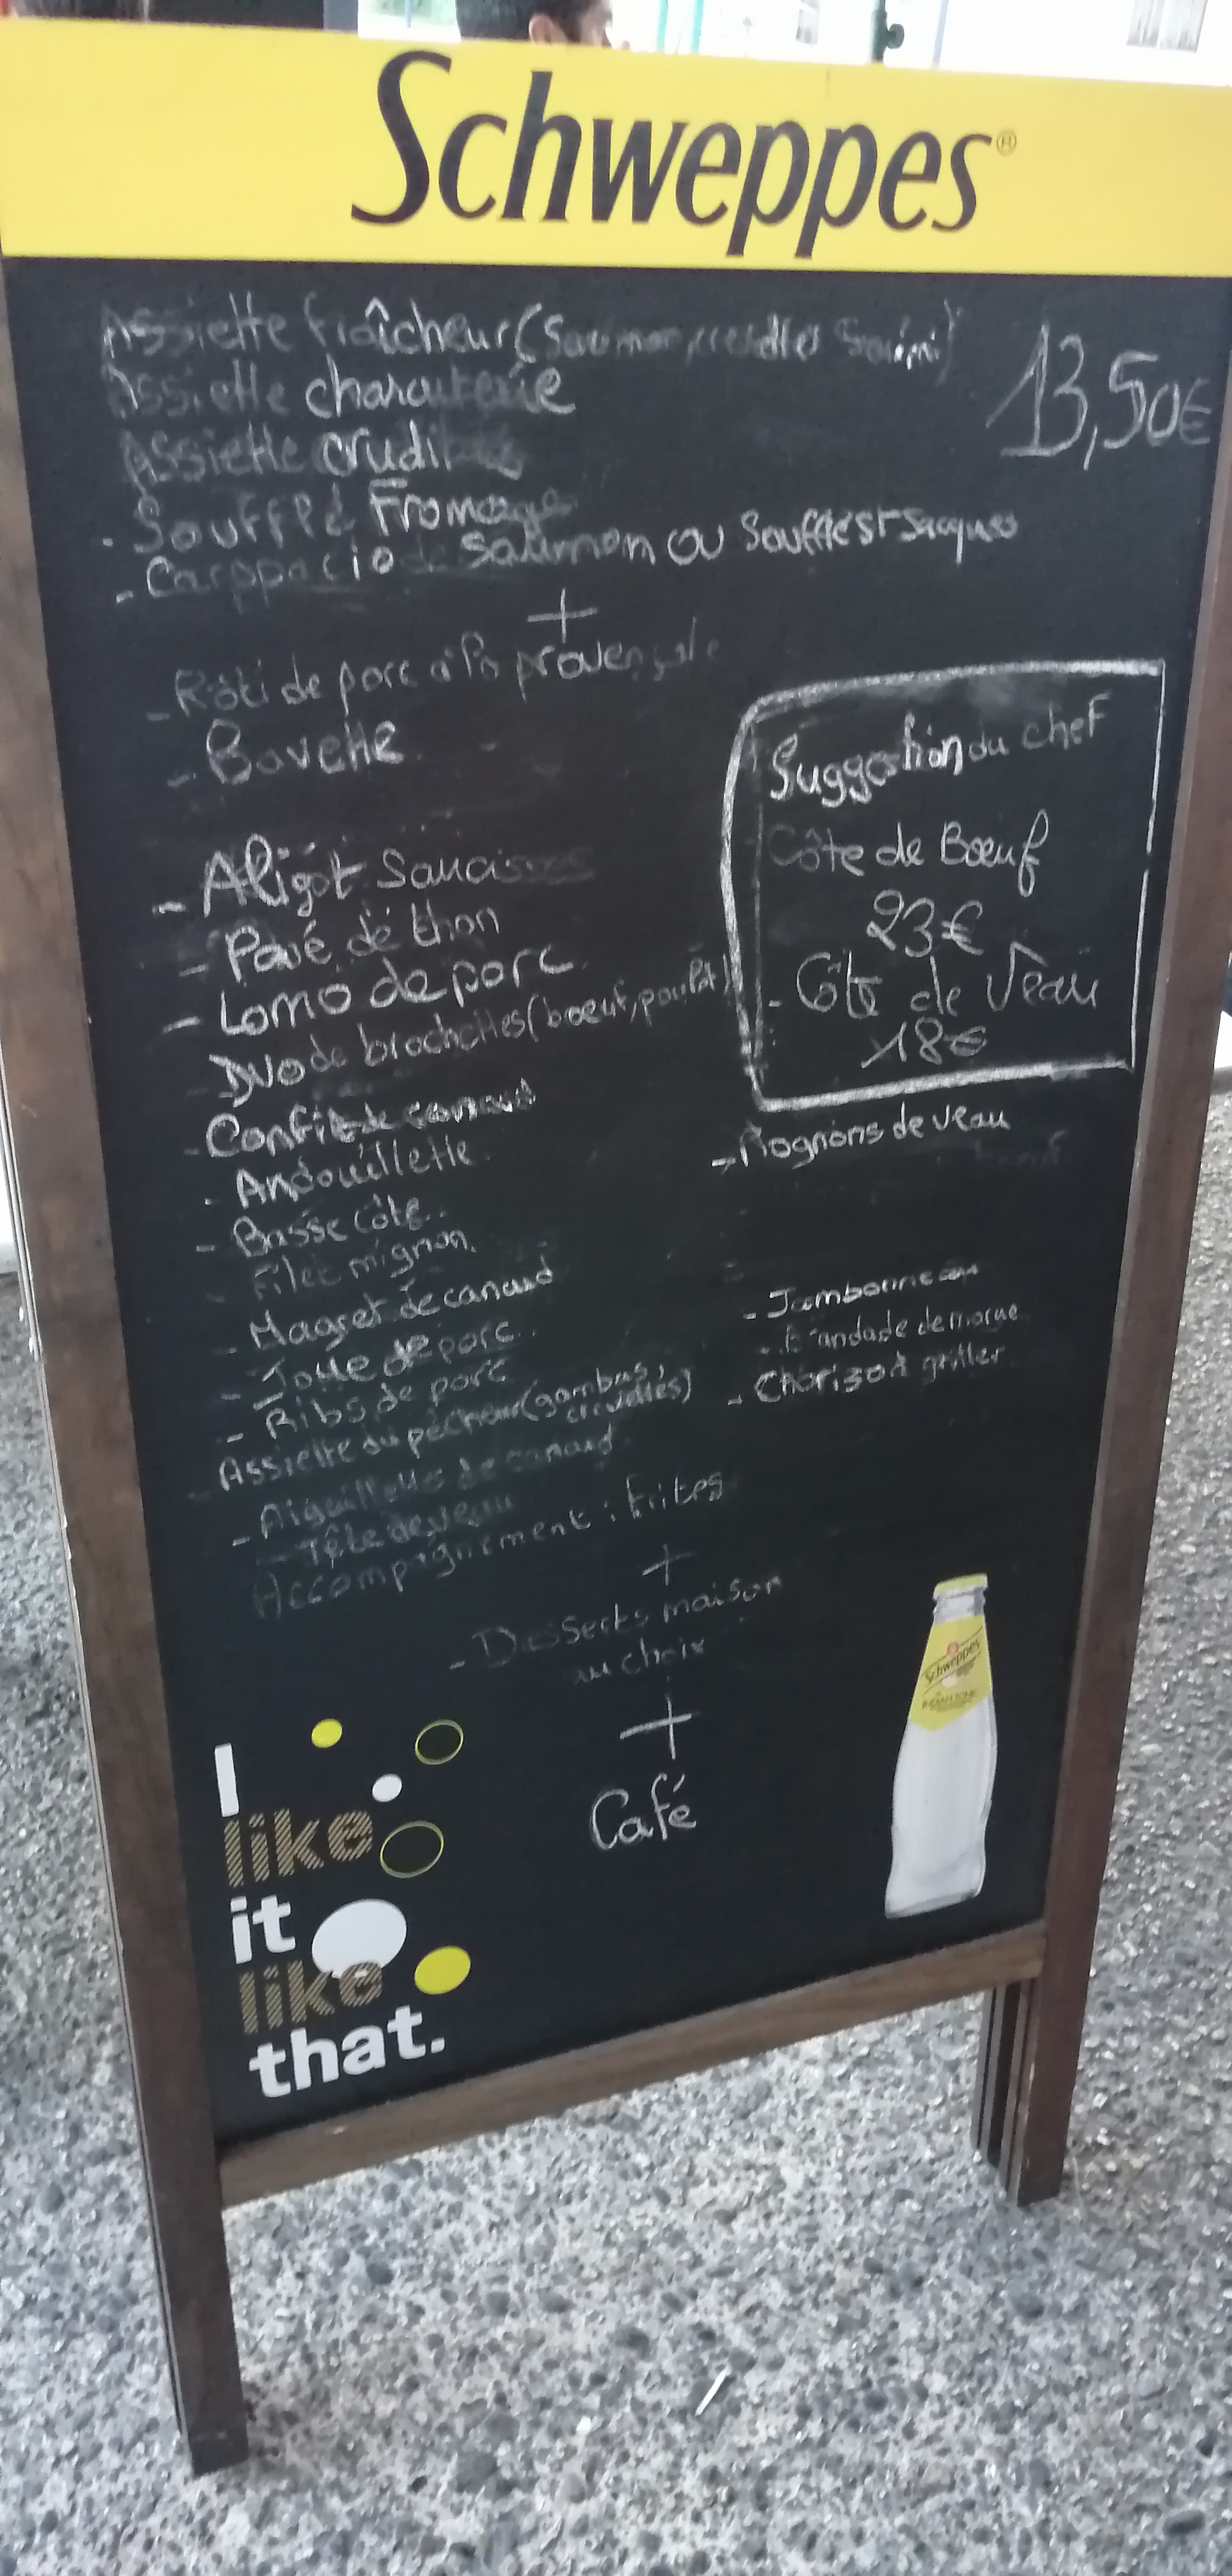 Schweppes®
Assiette fraîcheur (Saumon, crevettes Surimi)
13,50€
Assiette charcuterie
Assiette crudités
- Soufflé Fromage
- Carppacio de saumon ou Soufflé St Jacques
+
- Rôti de porc à la provençale
- Bavette
Suggestion du chef
Côte de Bœuf
23€
- Côte de Veau
18€
- Aligot Saucisses
- Pavé de thon
- Lomo de porc
- Duo de brochettes (boeuf, poulet)
- Confit de canard
- Rognons de veau
- Andouillette
- Basse côte
- Filet mignon
- Magret de canard
- Joue de porc
- Ribs de porc
- Jambonneau
- Brandade de morue
- Chorizo à griller
- Assiette du pêcheur (gambas, crevettes)
- Aiguillette de canard
- Tête de veau
Accompagnement : frites
+
- Desserts maison
au choix
+
Café
I
like
it
like
that.
Schweppes
INDIAN TONIC